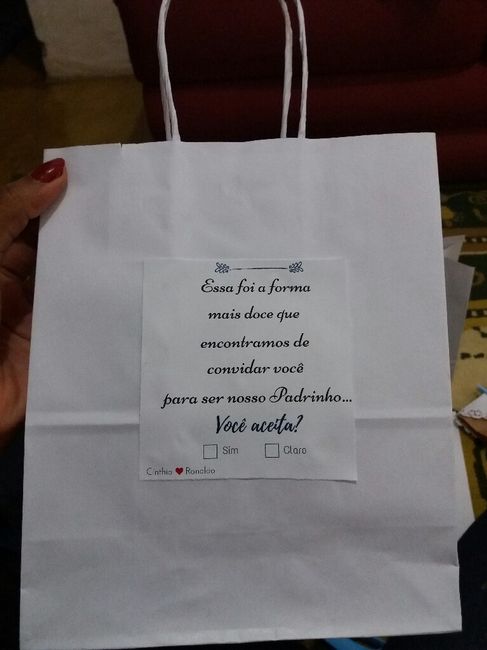 Essa foi a forma
mais doce que
encontramos de
convidar você
para ser nosso Padrinho...
Você aceita?
Sim Claro
Cinthia ❤ Ronaldo